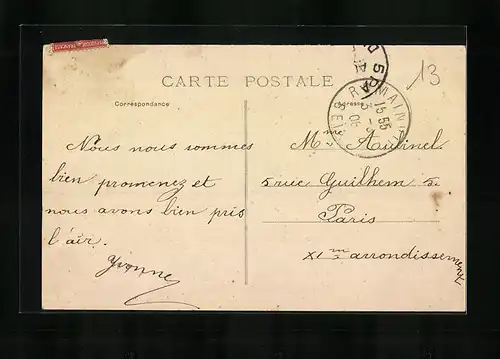 CARTE POSTALE
13
Correspondance
Adresse
ROMAINV
15 55
3 -
06
SEI
Nous nous sommes
bien promenez et
nous avons bien pris
l'air.
Yvonne
Mme Aubinel
5 rue Guilhem 5
Paris
XIme arrondissement